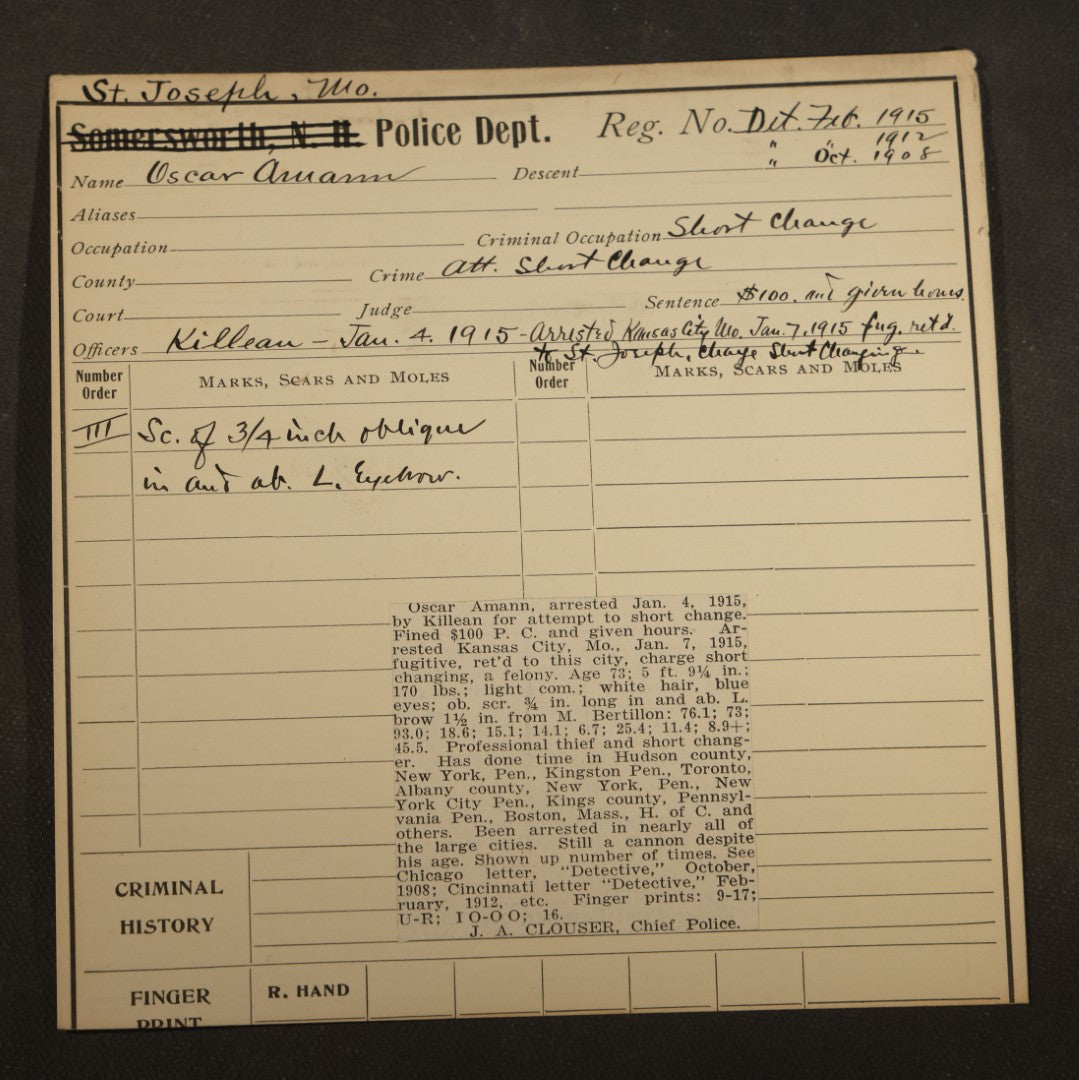 St. Joseph, Mo.
Somersworth, N. H. Police Dept. Reg. No. Det. Feb. 1915
" 1912
" Oct. 1908
Name Oscar Amann Descent
Aliases
Occupation Criminal Occupation Short Change
County Crime Att. Short Change
Court Judge Sentence $100. and given hours.
Officers Killean - Jan. 4. 1915 - Arrested Kansas City Mo. Jan. 7, 1915 fug. ret'd.
to St. Joseph, Charge Short Changing
Number Order MARKS, SCARS AND MOLES Number Order MARKS, SCARS AND MOLES
III Sc. of 3/4 inch oblique
in and ab. L. Eyebrow.
Oscar Amann, arrested Jan. 4, 1915,
by Killean for attempt to short change.
Fined $100 P. C. and given hours. Ar-
rested Kansas City, Mo., Jan. 7, 1915,
fugitive, ret'd to this city, charge short
changing, a felony. Age 73; 5 ft. 9¼ in.;
170 lbs.; light com.; white hair, blue
eyes; ob. scr. ¾ in. long in and ab. L.
brow 1½ in. from M. Bertillon: 76.1; 73;
93.0; 18.6; 15.1; 14.1; 6.7; 25.4; 11.4; 8.9+;
45.5. Professional thief and short chang-
er. Has done time in Hudson county,
New York, Pen., Kingston Pen., Toronto,
Albany county, New York, Pen., New
York City Pen., Kings county, Pennsyl-
vania Pen., Boston, Mass., H. of C. and
others. Been arrested in nearly all of
the large cities. Still a cannon despite
his age. Shown up number of times. See
Chicago letter, "Detective," October,
1908; Cincinnati letter "Detective," Feb-
ruary, 1912, etc. Finger prints: 9-17;
U-R; I O-O O; 16.
J. A. CLOUSER, Chief Police.
CRIMINAL
HISTORY
FINGER R. HAND
PRINT